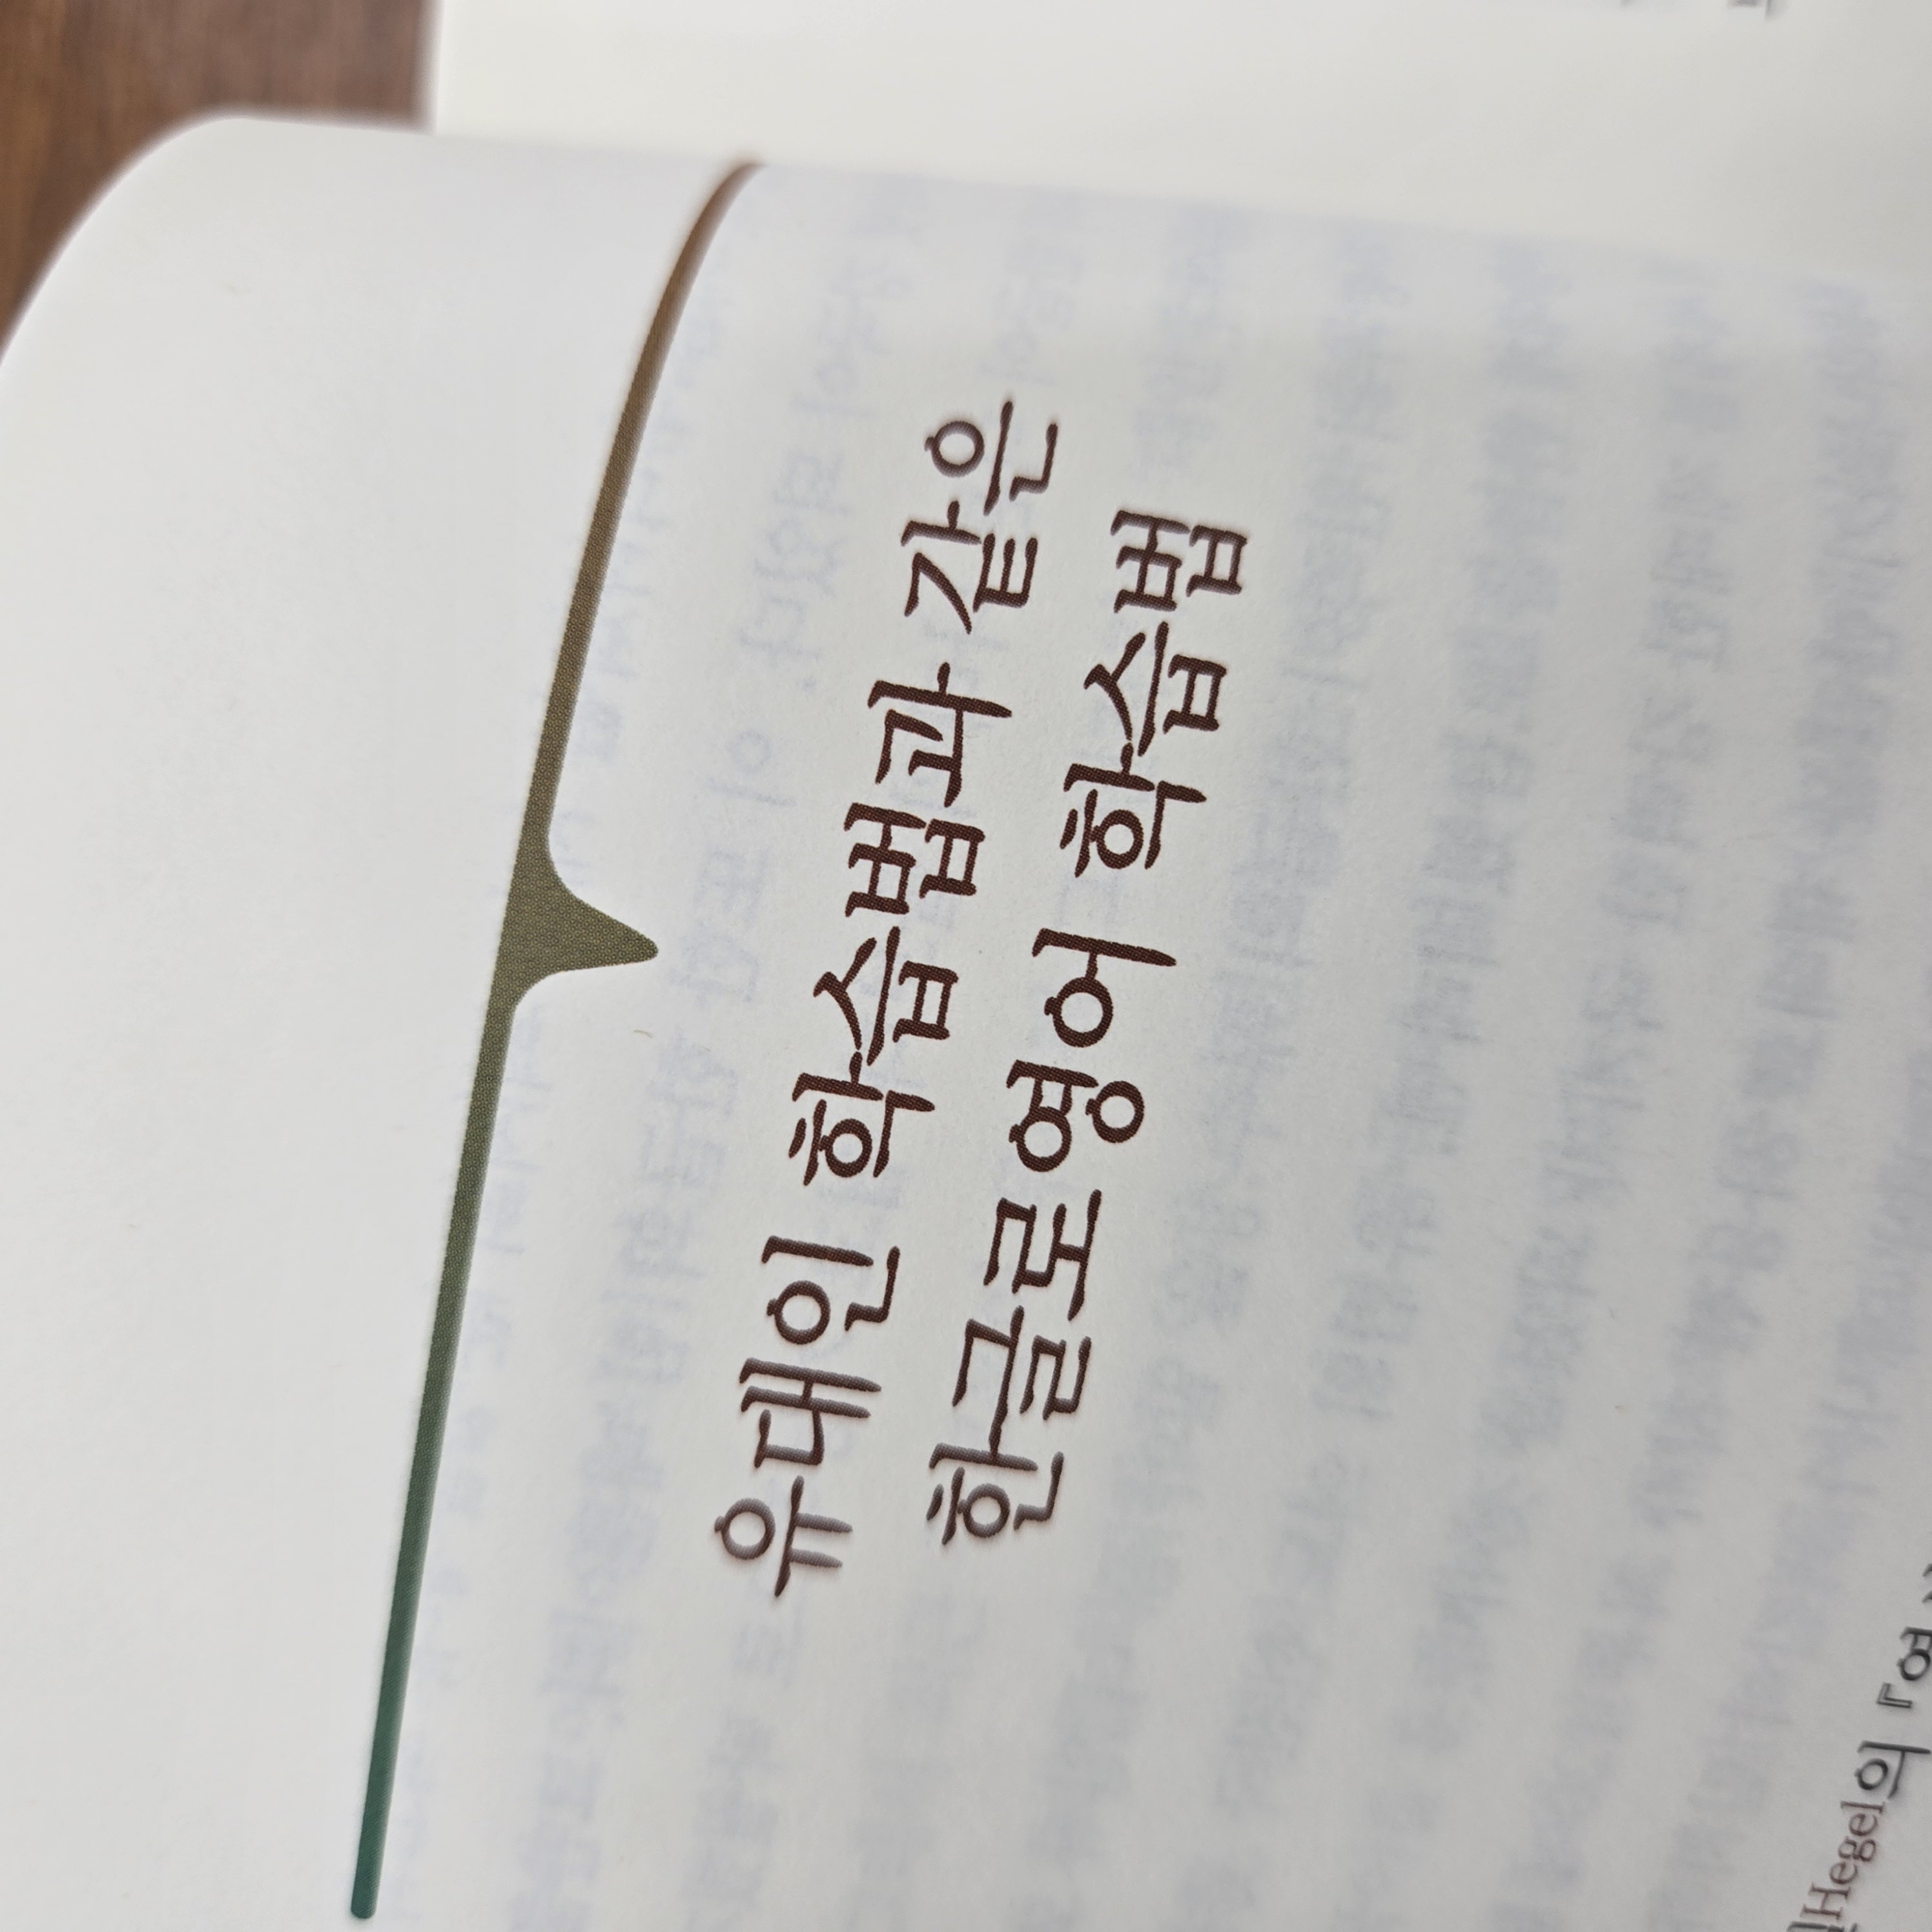 유대인 학습법과 같은
한글로영어 학습법
Hegel의